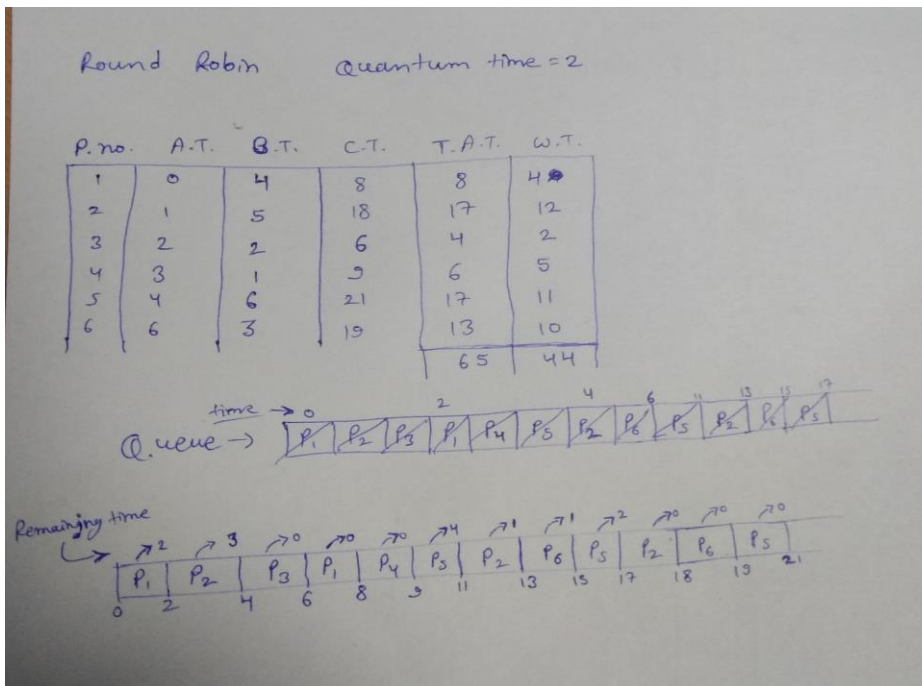 Round Robin Quantum time = 2
P. no. A.T. B.T. C.T. T.A.T. W.T.
1 0 4 8 8 4
2 1 5 18 17 12
3 2 2 6 4 2
4 3 1 9 6 5
5 4 6 21 17 11
6 6 3 19 13 10
65 44
time → 0 2 4 6 11 13 15 17
Queue → P1 P2 P3 P1 P4 P5 P2 P6 P5 P2 P6 P5
Remaining time
2 3 0 0 0 4 1 1 2 0 0 0
P1 P2 P3 P1 P4 P5 P2 P6 P5 P2 P6 P5
0 2 4 6 8 9 11 13 15 17 18 19 21